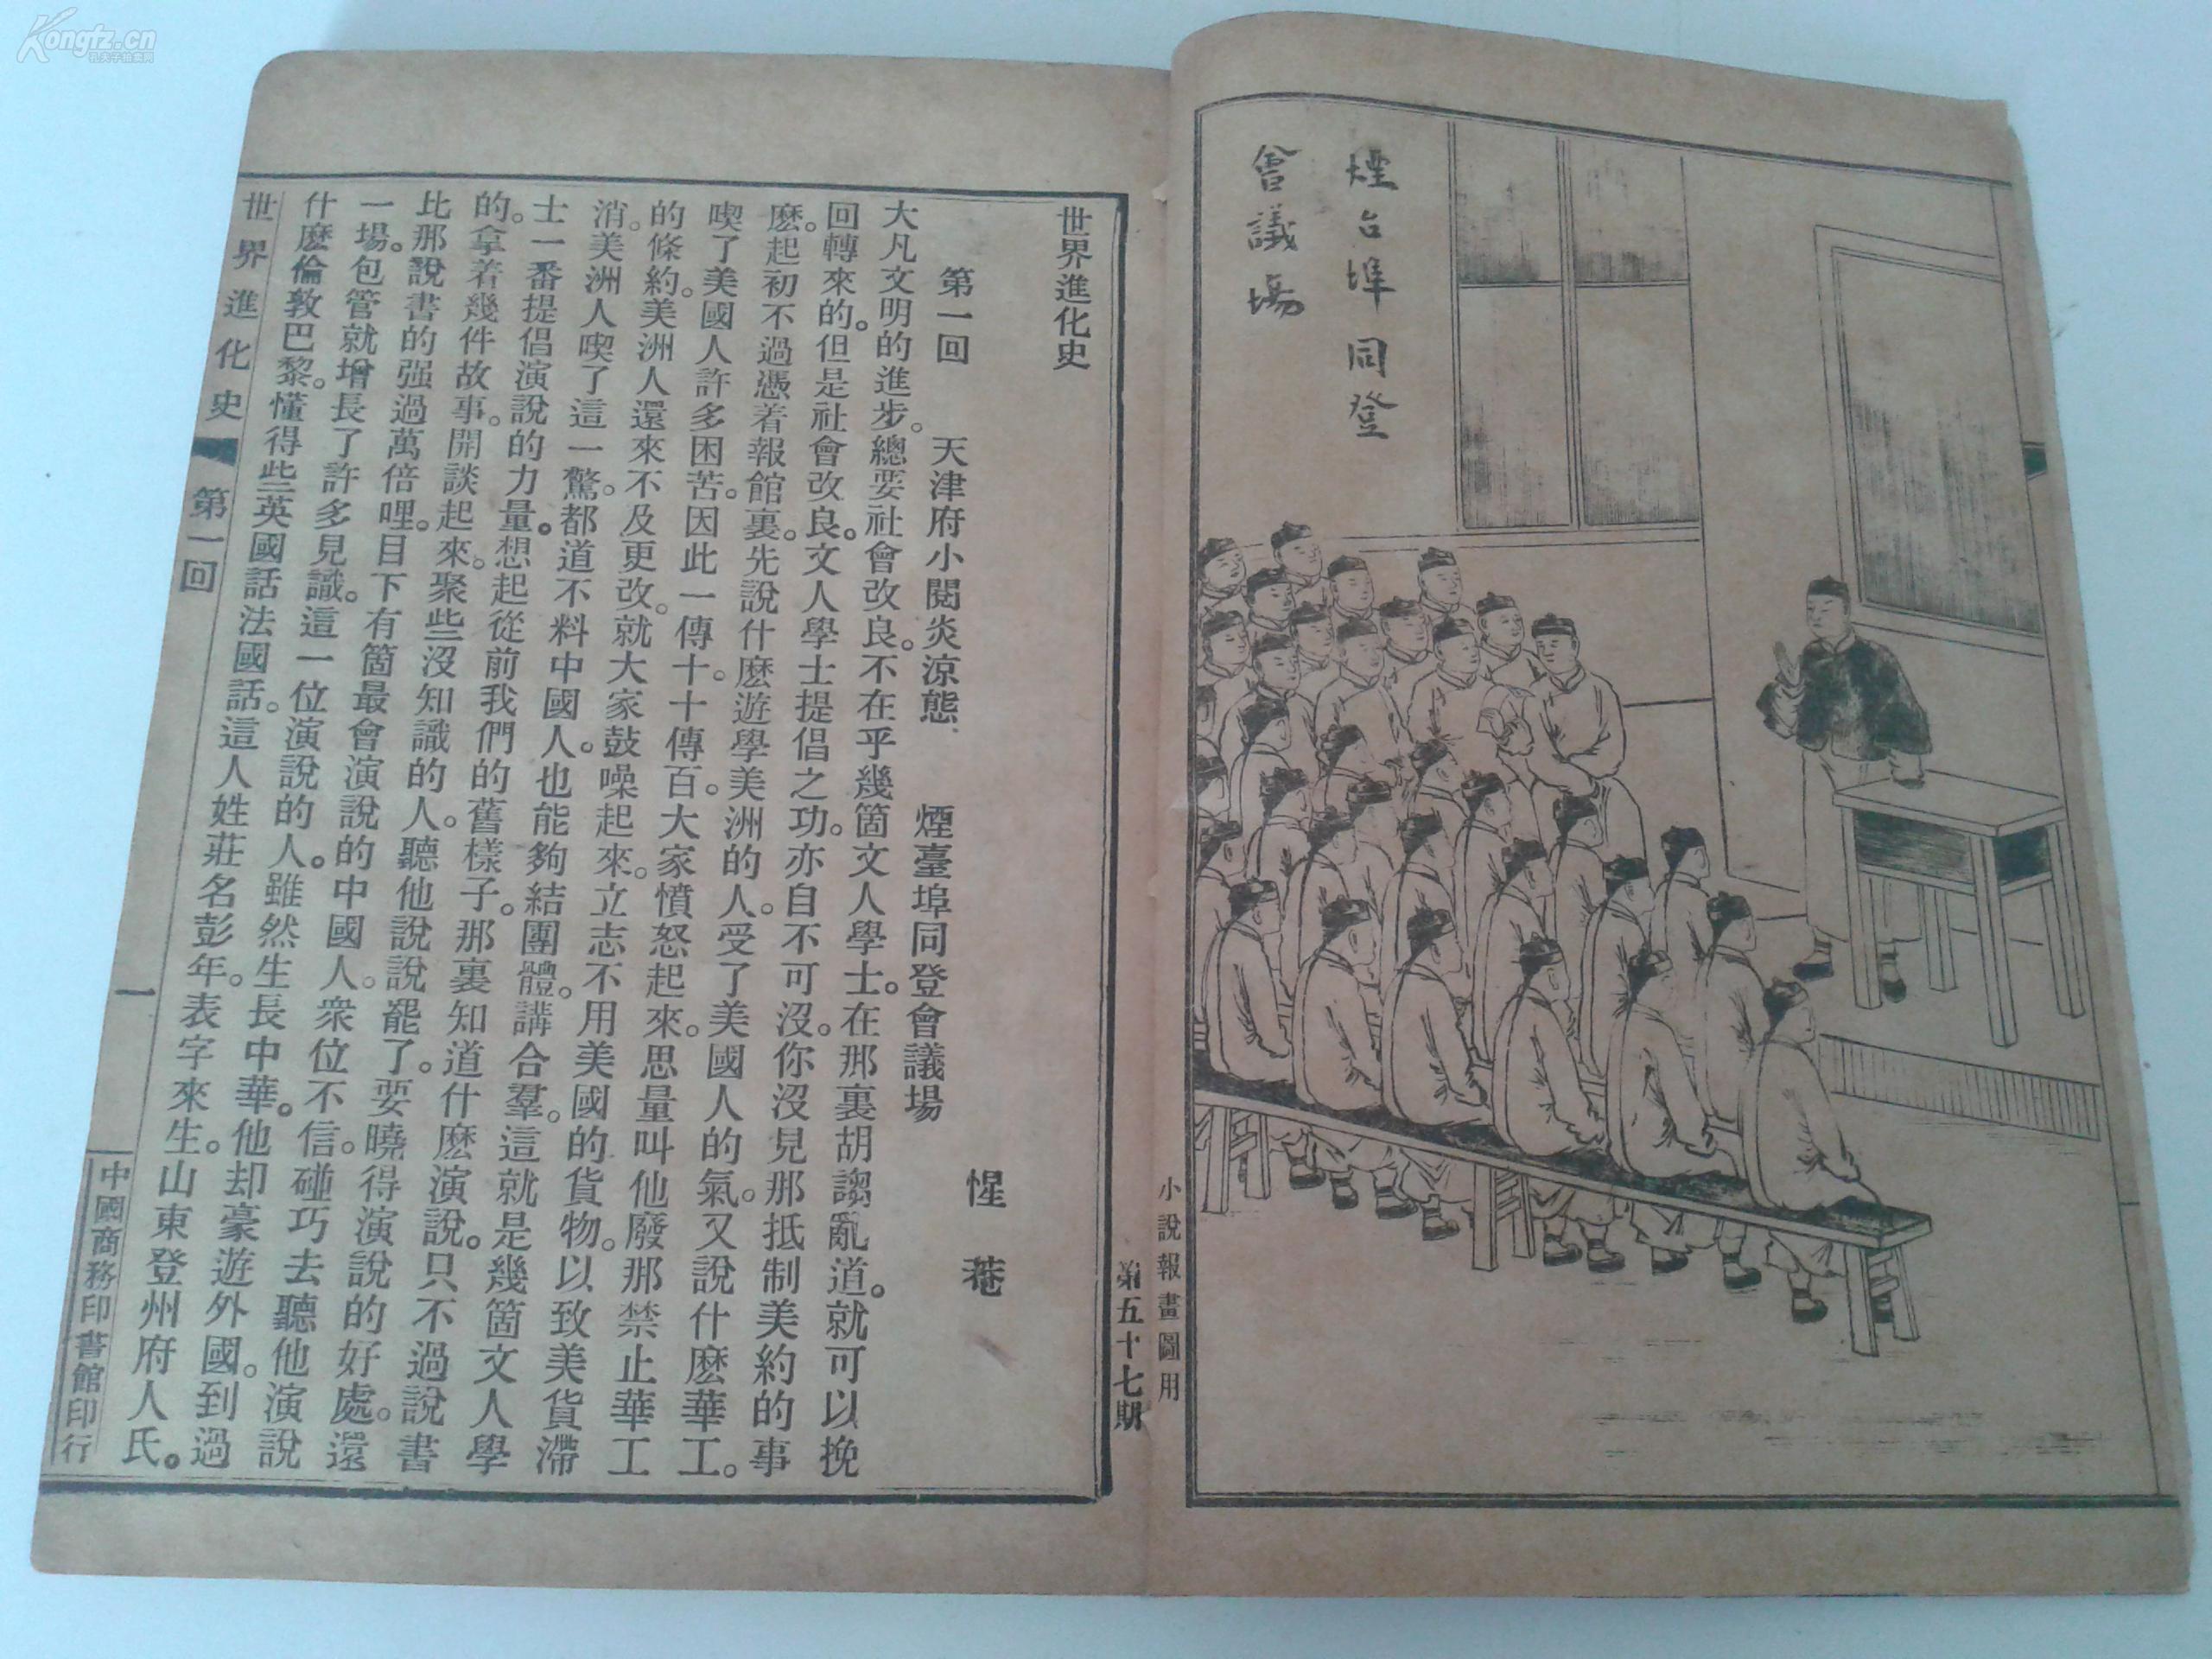 Kongfz.cn
孔夫子拍卖网
煙台埠同登
會議場
小說報畫圖用
第五十七期
世界進化史
惺菴
第一回　天津府小閱炎涼態　煙臺埠同登會議場
大凡文明的進步。總要社會改良。不在乎幾箇文人學士。在那裏胡謅亂道。就可以挽
回轉來的。但是社會改良。文人學士提倡之功。亦自不可沒。你沒見那抵制美約的事
麽。起初不過憑着報館裏。先說什麽遊學美洲的人。受了美國人的氣。又說什麽華工。
喫了美國人許多困苦。因此一傳十。十傳百。大家憤怒起來。思量叫他廢那禁止華工
的條約。美洲人還來不及更改。就大家鼓噪起來。立志不用美國的貨物。以致美貨滯
消。美洲人喫了這一驚。都道不料中國人。也能夠結團體。講合羣。這就是幾箇文人學
士一番提倡演說的力量。想起從前我們的舊樣子。那裏知道什麽演說。只不過說書
的。拿着幾件故事。開談起來。聚些沒知識的人。聽他說說罷了。要曉得演說的好處。還
比那說書的强過萬倍哩。目下有箇最會演說的中國人。衆位不信。碰巧去聽他演說
一場。包管就增長了許多見識。這一位演說的人。雖然生長中華。他却豪遊外國。到過
什麽倫敦巴黎。懂得些英國話法國話。這人姓莊名彭年。表字來生。山東登州府人氏。
世界進化史　第一回　一　中國商務印書館印行